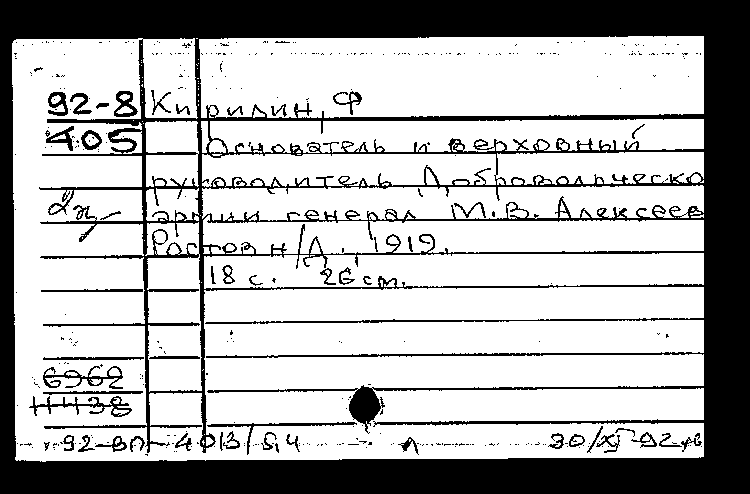 92-8 Кирилин, Ф
405 Основатель и верховный
руководитель Добровольческо
2я армии генерал М.В. Алексеев
Ростов н/Д., 1919.
18 с. 26 cm.
6962
11438
92-ВП-4013/5,4 Л 30/XI-92